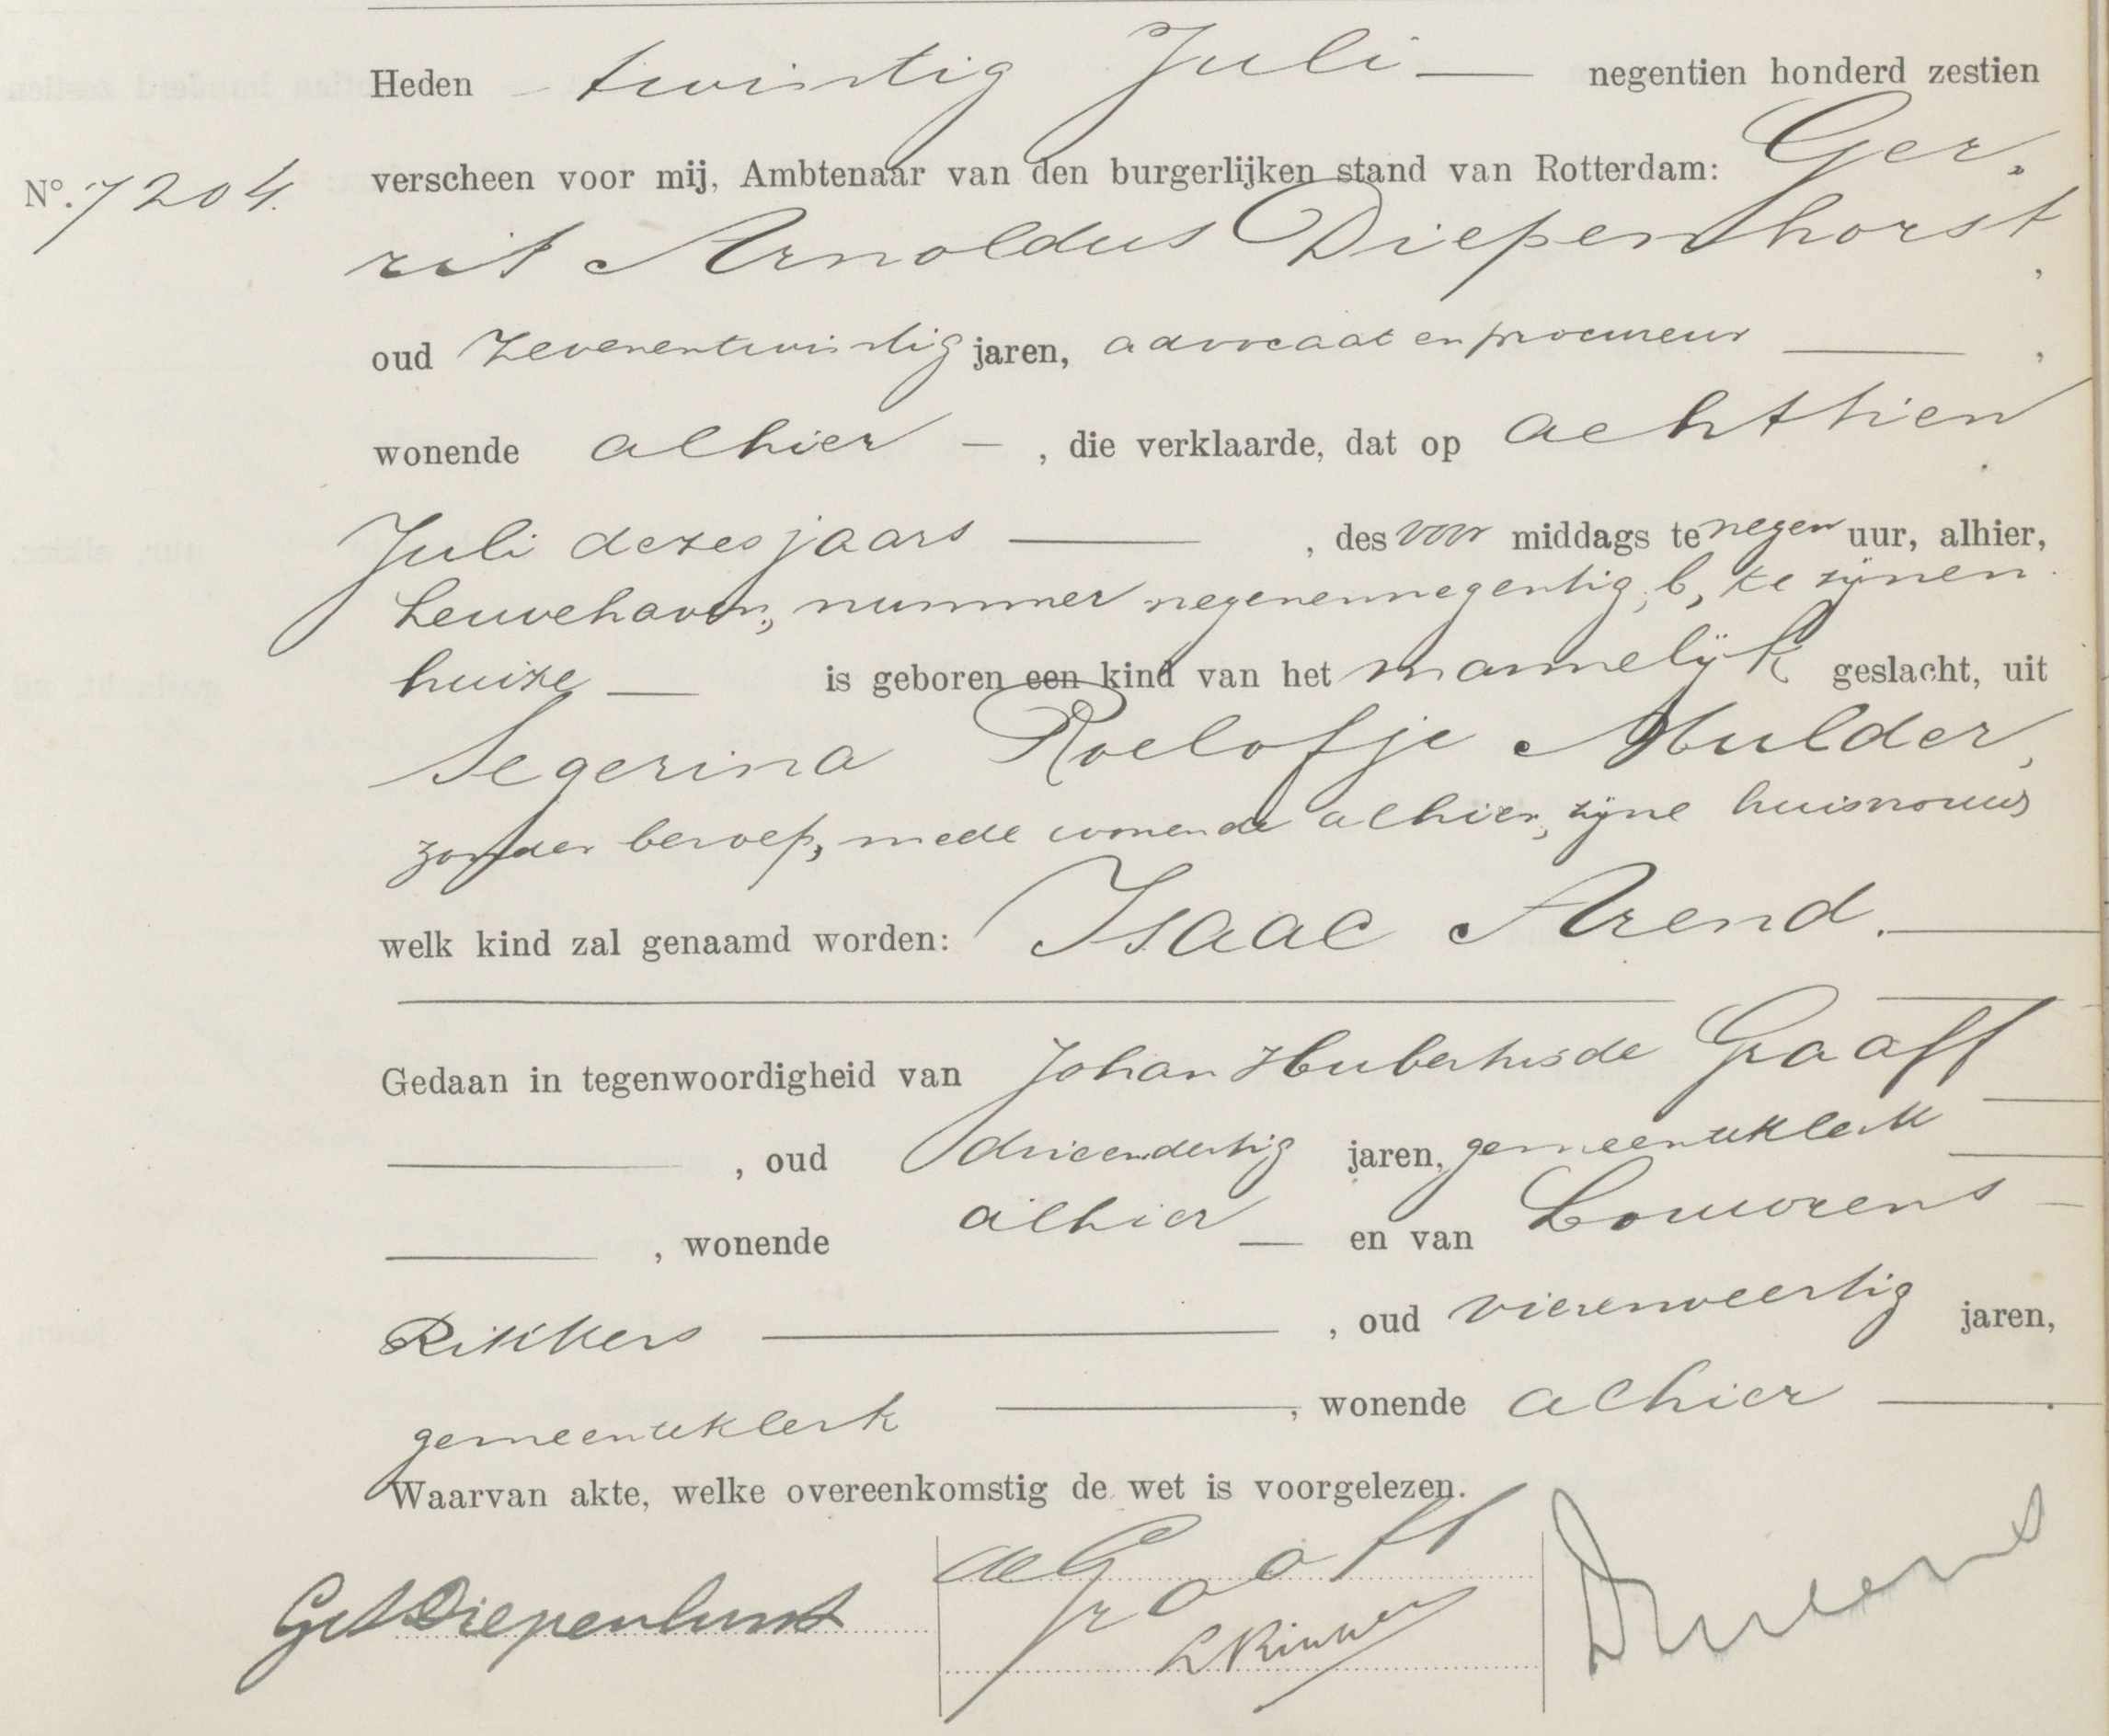 Heden twintig Juli negentien honderd zestien
No. 7204. verscheen voor mij, Ambtenaar van den burgerlijken stand van Rotterdam: Ger-
rit Arnoldus Diepenhorst,
oud Zevenentwintig jaren, advocaat en procureur,
wonende alhier, die verklaarde, dat op achttien
Juli dezes jaars, des voor middags te negen uur, alhier,
Leuvehaven, nummer negenennegentig, b, te zijnen
huize is geboren een kind van het mannelijk geslacht, uit
Segerina Roelofje Mulder,
zonder beroep, mede wonende alhier, zijne huisvrouw
welk kind zal genaamd worden: Isaac Arend.
Gedaan in tegenwoordigheid van Johan Hubertus de Graaff
, oud drieendertig jaren, gemeenteklerk
, wonende alhier en van Louwrens
Rikkers, oud vierenveertig jaren,
gemeenteklerk, wonende alhier.
Waarvan akte, welke overeenkomstig de wet is voorgelezen.
de Graaff
GADiepenhorst
LRikkers